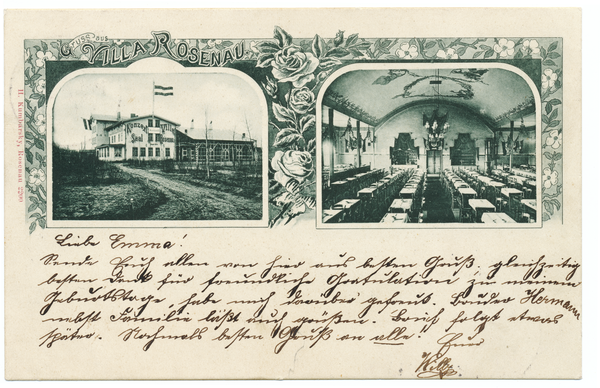 Gruss aus
VILLA ROSENAU.
H. Kumbarsky, Rosenau 2200
Liebe Emma!
Sende Euch allen von hier aus besten Gruß, gleichzeitig
besten Dank für freundliche Gratulation zu meinem
Geburtstage, habe mich darüber gefreut. Bruder Hermann
nebst Familie läßt auch grüßen. Brief folgt etwas
später. Nochmals besten Gruß an alle!
Euer
Willy.